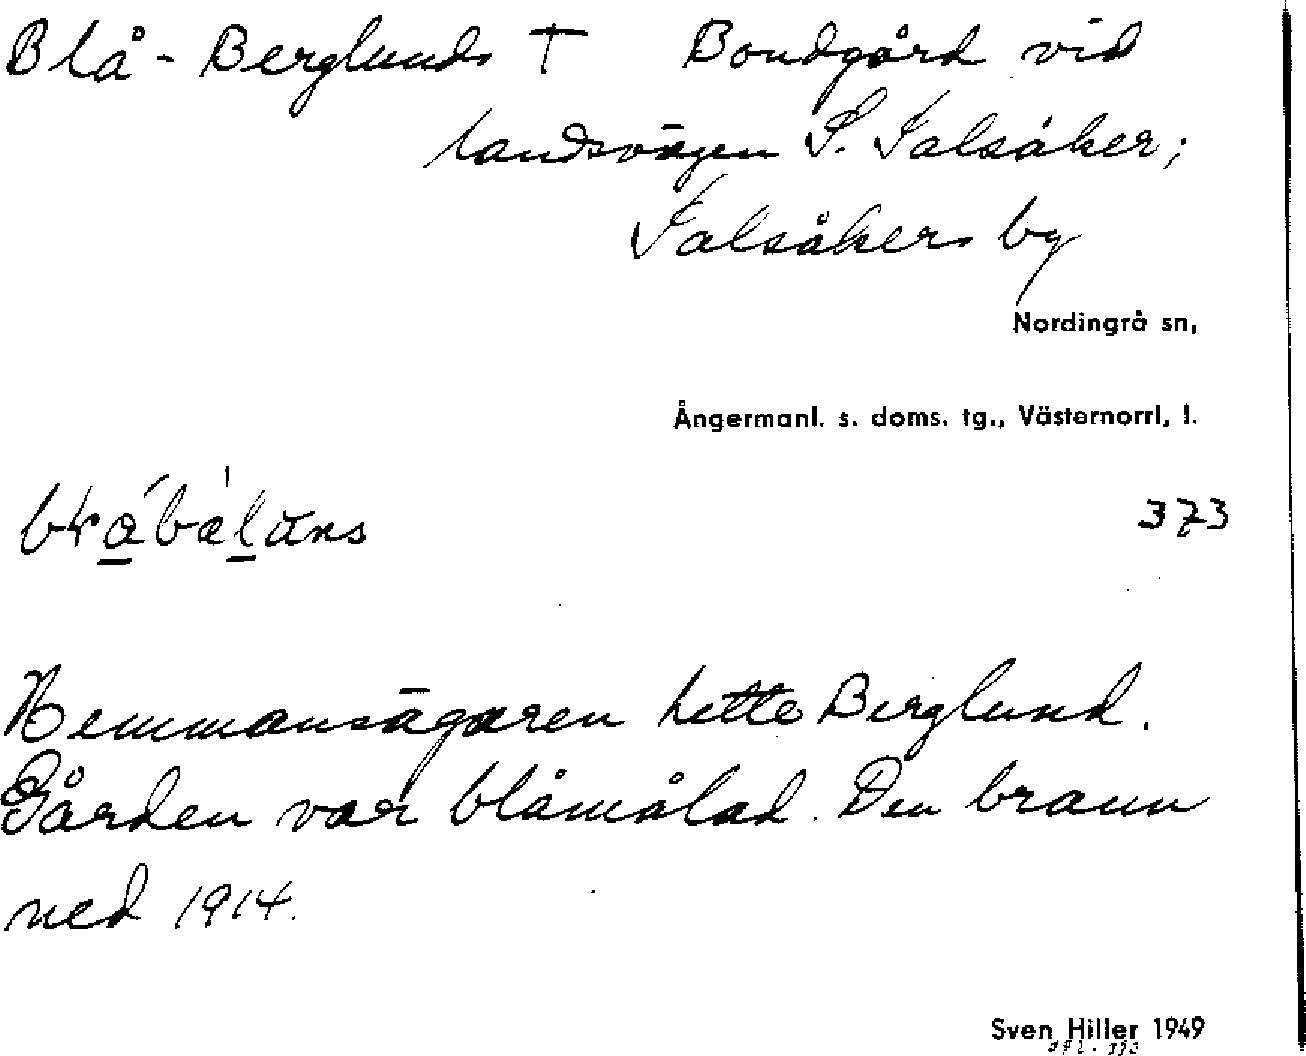 Blå-Berglunds † Bondgård vid
landsvägen S. Falsåker;
Falsåkers by
Nordingrå sn,
Ångermanl. s. doms. tg., Västernorrl, l.
373
Hemmansägaren hette Berglund.
Gården var blåmålad. Den brann
ned 1914.
Sven Hiller 1949